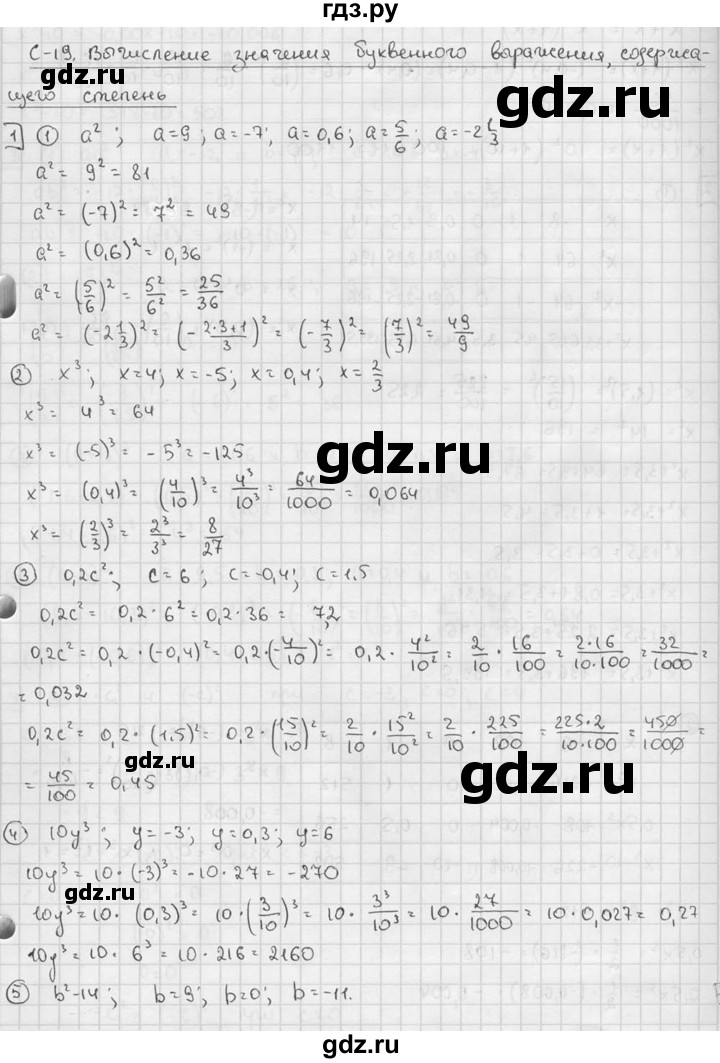 гдз.ру
С-19. Вычисление значения буквенного выражения, содержа-
щего степень
1 ① a²; a=9; a=-7; a=0,6; a=5/6; a=-2 1/3
a² = 9² = 81
a² = (-7)² = 7² = 49
a² = (0,6)² = 0,36
a² = (5/6)² = 5²/6² = 25/36
a² = (-2 1/3)² = (- (2·3+1)/3)² = (-7/3)² = (7/3)² = 49/9
② x³; x=4; x=-5; x=0,4; x=2/3
x³ = 4³ = 64
x³ = (-5)³ = -5³ = -125
x³ = (0,4)³ = (4/10)³ = 4³/10³ = 64/1000 = 0,064
x³ = (2/3)³ = 2³/3³ = 8/27
③ 0,2c²; c=6; c=-0,4; c=1.5
0,2c² = 0,2·6² = 0,2·36 = 7,2
0,2c² = 0,2·(-0,4)² = 0,2·(-4/10)² = 0,2·4²/10² = 2/10·16/100 = 2·16/10·100 = 32/1000 =
= 0,032
0,2c² = 0,2·(1.5)² = 0,2·(15/10)² = 2/10·15²/10² = 2/10·225/100 = 225·2/10·100 = 450/1000 =
= 45/100 = 0,45
④ 10y³; y=-3; y=0,3; y=6
10y³ = 10·(-3)³ = -10·27 = -270
10y³ = 10·(0,3)³ = 10·(3/10)³ = 10·3³/10³ = 10·27/1000 = 10·0,027 = 0,27
10y³ = 10·6³ = 10·216 = 2160
⑤ b²-14; b=9; b=0; b=-11.
gdz.ru
gdz.ru
gdz.ru
gdz.ru
gdz.ru
gdz.ru
gdz.ru